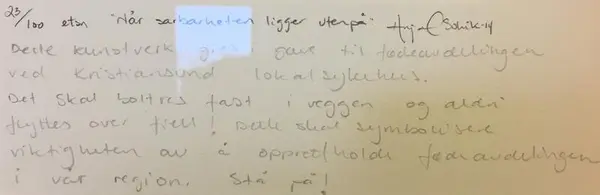 23/100 etsn "Når sårbarheten ligger utenpå"
Dette kunstverk gis i gave til fødeavdelingen
ved Kristiansund lokalsykehus.
Det skal boltres fast i veggen og aldri
flyttes over fjell! Dette skal symbolisere
viktigheten av å opprettholde fødeavdelingen
i vår region. Stå på!